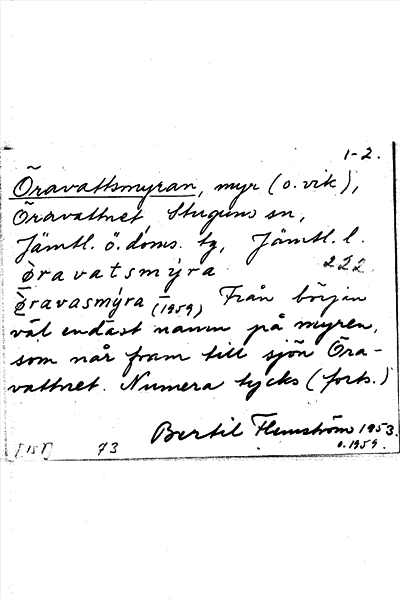 1-2.
Öravattsmyran, myr (o. vik),
Öravattnet, Stuguns sn,
Jämtl. ö. doms. tg, Jämtl. l.
øravatsmýra 222
øravasmýra (1959) Från början
väl endast namn på myren,
som når fram till sjön Öra-
vattnet. Numera tycks (forts.)
Bertil Flemström 1953.
o. 1959.
[151] 73